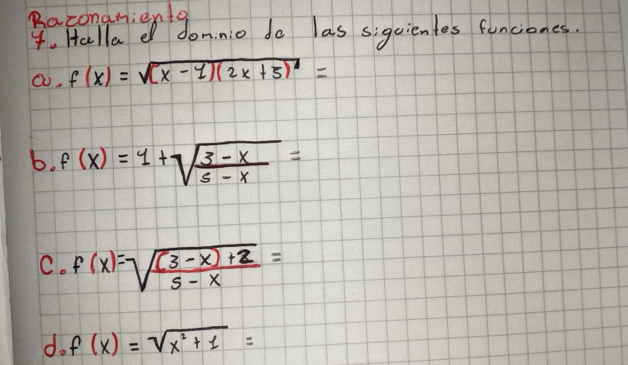 Razonamiento
7. Halla el dominio de las siguientes funciones.
a. f(x) = √(x - 1)(2x + 5) =
b. f(x) = 1 + √3 - x / 5 - x =
c. f(x) = √(3 - x) + 2 / 5 - x =
d. f(x) = √x² + 1 =